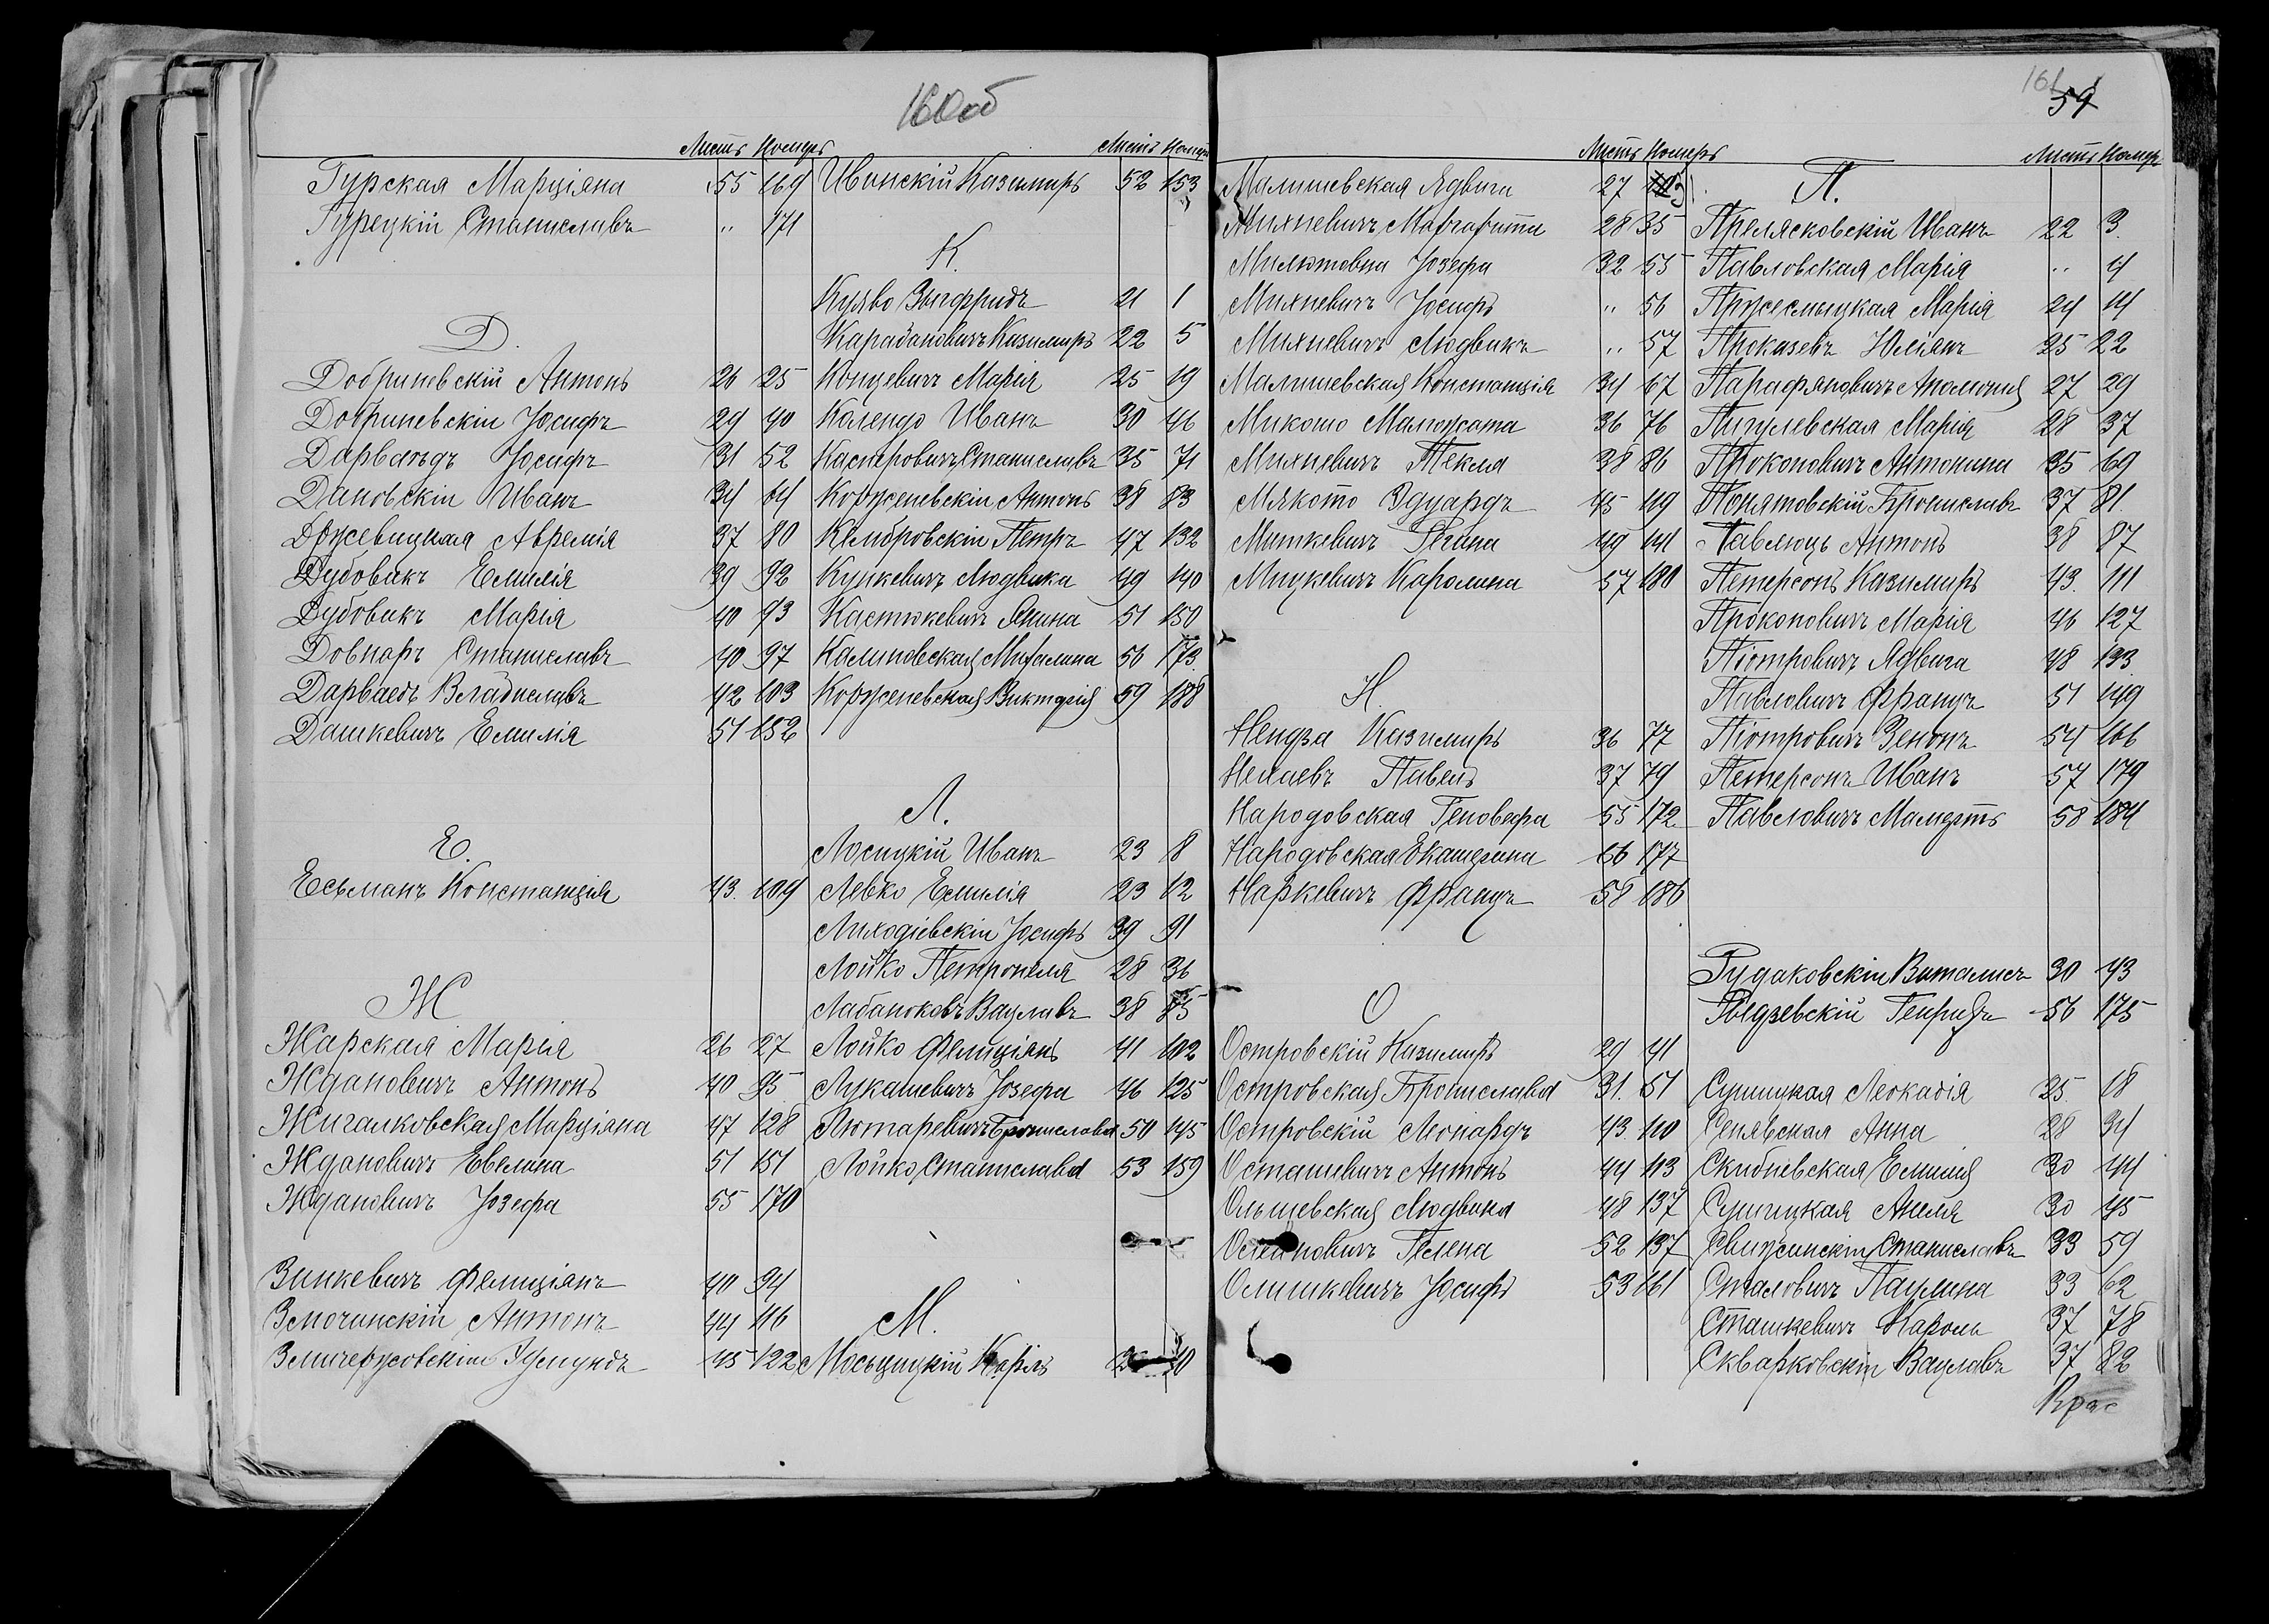 160об
Листъ Номеръ
Гурская Марціяна 55 169
Гурецкій Станиславъ " 171
Д.
Добриневскій Антонъ 26 25
Добриневскій Іосифъ 29 40
Дарвалъдъ Іосифъ 31 52
Дановскій Иванъ 34 64
Држевицкая Авремія 37 80
Дубовикъ Емилія 39 92
Дубовикъ Марія 40 93
Довнаръ Станиславъ 40 97
Дарвалдъ Владиславъ 42 103
Дашкевичъ Емилія 51 152
Е.
Есьманъ Констанція 43. 109
Ж
Жарская Марія 26 27
Ждановичъ Антонъ 40 95
Жигалковская Марціяна 47 128
Ждановичъ Евелина 51 151
Ждановичъ Іозефа 55 170
Зинкевичъ Фелиціанъ 40 94
Змочинскій Антонъ 44 116
45 122
Листъ Номеръ
Иванскій Казимиръ 52 153
К.
Куяво Зыгфридъ 21 1
Карабановичъ Казимиръ 22 5
Концевичъ Марія 25 19
Календо Иванъ 30 46
Касперовичъ Станиславъ 35 71
Корженевскій Антонъ 38 83
Кембровскій Петръ 47 132
Куцкевичъ Людвика 49 140
Кастюкевичъ Янина 51 150
Калиновская Михалина 56 173
Корженевская Викторія 59 188
Л.
Лосицкій Иванъ 23 8
Левко Емилія 23 12
Лиходіевскій Іосифъ 39 91
Лойко Петронеля 28 36
Лабаноковъ Вацлавъ 38 85
Лойко Фелиціянъ 41 102
Лукашевичъ Іозефа 46 125
Лютаревичъ Брониславъ 50 145
Лойко Станиславъ 53 159
М.
Мосьцицкій Каріль
161
59
Листъ Номеръ
Малишевская Ядвига 27
Михневичъ Маргарита 28 35
Милютовна Іозефа 32 55
Михневичъ Іосифъ " 56
Михневичъ Людвикъ " 57
Малишевская Констанція 34 67
Микото Малгожата 36 76
Михневичъ Текля 38 86
Мякото Эдуардъ 45 119
Миткевичъ Регина 49 141
Мицкевичъ Каролина 57 180
Н.
Нендза Казимиръ 36 77
Нехаевъ Павелъ 37 79
Народовская Геновефа 55 172
Народовская Екатерина 56 177
Наркевичъ Францъ 58 186
О
Островскій Казимиръ 29 41
Островская Бронислава 31. 51
Островскій Леонардъ 43. 110
Осташевичъ Антонъ 44 113
Ольшевская Людвика 48 137
Олехновичъ Гелена 52 157
Олишкевичъ Іосифъ 53 161
Листъ Номеръ
П.
Прелясковскій Иванъ 22 3.
Павловская Марія " 4
Пржесмыцкая Марія 24 14
Проказевъ Юліянъ 25 22
Парафяновичъ Аполонія 27 29
Пигулевская Марія 28 37
Прокоповичъ Антонина 35 69
Понятовскій Брониславъ 37 81.
Павлюць Антонъ 38 87
Петерсонъ Казимиръ 43. 111
Прокоповичъ Марія 46 127
Піотровичъ Ядвига 48 133
Павловичъ Францъ 51 149
Піотровичъ Зенонъ 54 166
Петерсонъ Иванъ 57 179
Павловичъ Мамертъ 58 184
Рудаковскій Виталисъ 30 43
Рыдзевскій Генрихъ 56 175
Сушицкая Леокадія 25. 18
Сенявская Анна 28 34
Скибневская Емилія 30 44
Сушицкая Анеля 30 45
Свижинскій Станиславъ 33 59
Сталовичъ Паулина 33 62
Сташкевичъ Кароль 37 78
Скварковскій Вацлавъ 37 82